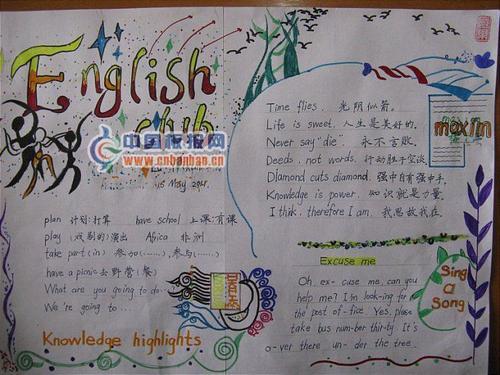 English
club
中国板报网
www.cnbanbao.cn
15 May
plan 计划:打算 have school 上课:有课
play (戏剧的)演出 Africa 非洲
take part (in) 参加(......), 参与(......)
have a picnic 去野营(餐)
What are you going to do...
We're going to...
Knowledge highlights
Time flies. 光阴似箭。
Life is sweet. 人生是美好的。
Never say "die". 永不言败。
Deeds, not words. 行动胜于空谈。
Diamond cuts diamond. 强中自有强中手。
Knowledge is power. 知识就是力量。
I think, therefore I am. 我思故我在。
maxim
Excuse me
Oh, ex- cuse me, can you
help me? I'm look-ing for
the post of-fice. Yes, please
take bus num-ber thir-ty. It's
o-ver there un-der the tree.
Sing
a
Song